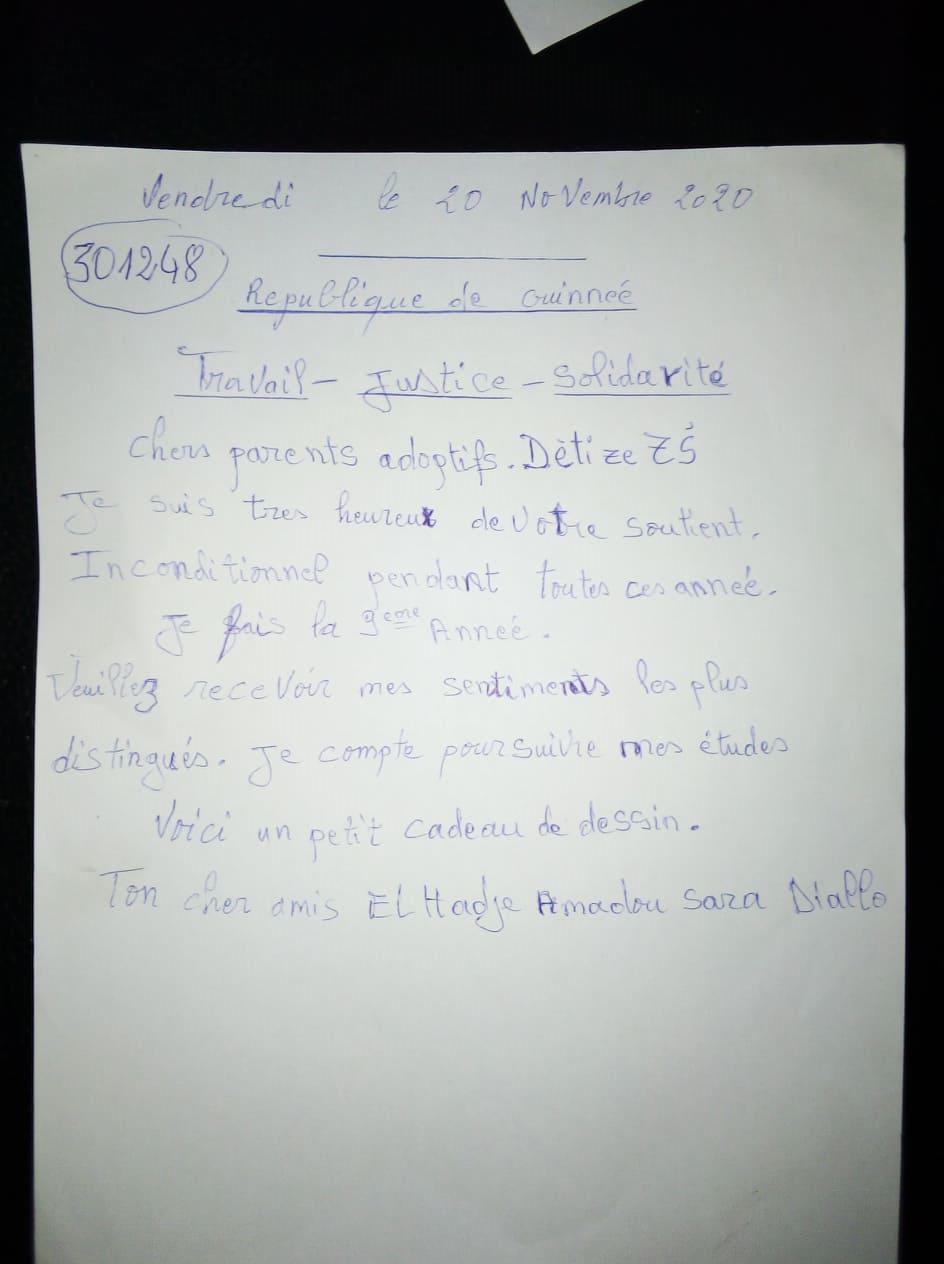 Vendredi le 20 Novembre 2020
301248
Republique de Guinneé
Travail - Justice - Solidarité
Chers parents adoptifs. Dèti ze ZŠ
Je suis tres heureux de votre soutient.
Inconditionnel pendant toutes ces anneé.
Je fais la 9eme Anneé.
Veuillez recevoir mes sentiments les plus
distingués. Je compte poursuivre mes études
Voici un petit cadeau de dessin.
Ton cher amis EL Hadje Amadou Sara Diallo